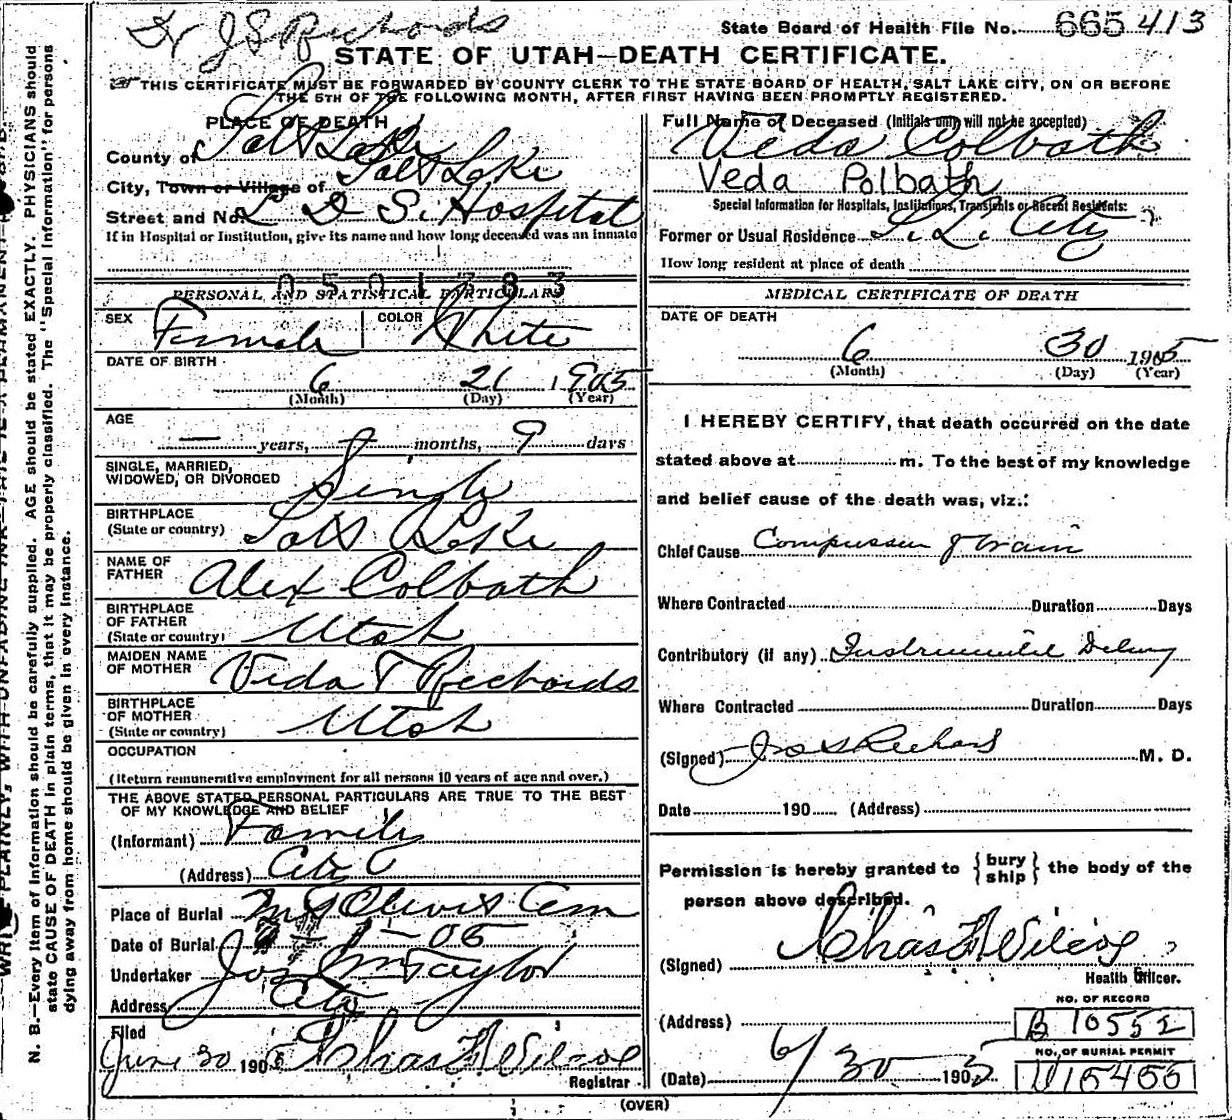 Dr J S Richards
State Board of Health File No. 665 413
STATE OF UTAH—DEATH CERTIFICATE.
THIS CERTIFICATE MUST BE FORWARDED BY COUNTY CLERK TO THE STATE BOARD OF HEALTH, SALT LAKE CITY, ON OR BEFORE
THE 5TH OF THE FOLLOWING MONTH, AFTER FIRST HAVING BEEN PROMPTLY REGISTERED.
PLACE OF DEATH
County of Salt Lake
City, Town or Village of Salt Lake
Street and No. L D S. Hospital
If in Hospital or Institution, give its name and how long deceased was an inmate
0501783
PERSONAL AND STATISTICAL PARTICULARS
SEX Female COLOR White
DATE OF BIRTH
6 21 1905
(Month) (Day) (Year)
AGE
— years, — months, 9 days
SINGLE, MARRIED,
WIDOWED, OR DIVORCED Single
BIRTHPLACE
(State or country) Salt Lake
NAME OF
FATHER Alex Colbath
BIRTHPLACE
OF FATHER
(State or country) Utah
MAIDEN NAME
OF MOTHER Veda T Richards
BIRTHPLACE
OF MOTHER
(State or country) Utah
OCCUPATION
(Return remunerative employment for all persons 10 years of age and over.)
THE ABOVE STATED PERSONAL PARTICULARS ARE TRUE TO THE BEST
OF MY KNOWLEDGE AND BELIEF
(Informant) Family
(Address) City
Place of Burial Mt Olivet Cem
Date of Burial 1–05
Undertaker Jos Wm Taylor
Address City
Filed
June 30 1905 Chas F Wilcox
Registrar
Full Name of Deceased (Initials only will not be accepted)
Veda Colbath
Veda Polbath
Special Information for Hospitals, Institutions, Transients or Recent Residents:
Former or Usual Residence S. L. City
How long resident at place of death
MEDICAL CERTIFICATE OF DEATH
DATE OF DEATH
6 30 1905
(Month) (Day) (Year)
I HEREBY CERTIFY, that death occurred on the date
stated above at m. To the best of my knowledge
and belief cause of the death was, viz.:
Chief Cause Compression of brain
Where Contracted Duration Days
Contributory (if any) Instrumental Delivery
Where Contracted Duration Days
(Signed) Jos S Richards M. D.
Date 190 (Address)
Permission is hereby granted to {bury ship} the body of the
person above described.
(Signed) Chas F Wilcox
Health Officer.
NO. OF RECORD
(Address) B 10552
NO. OF BURIAL PERMIT
(Date) 6/30 1905 U15455
(OVER)
N. B.—Every item of information should be carefully supplied. AGE should be stated EXACTLY. PHYSICIANS should
state CAUSE OF DEATH in plain terms, that it may be properly classified. The "Special Information" for persons
dying away from home should be given in every instance.
PLAINLY, WITH UNFADING INK—